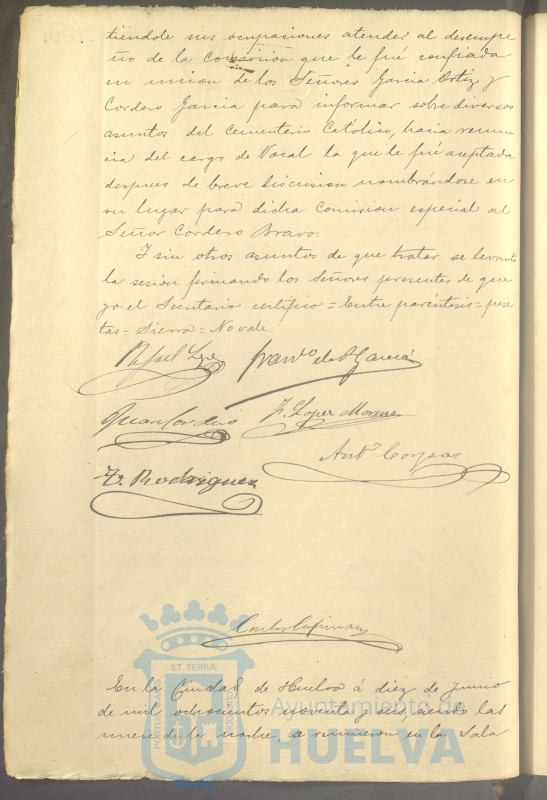 tiendole sus ocupaciones atender al desempe
ño de la Comision que le fué confiada
en union de los Señores Garcia Ortiz y
Cordero Garcia para informar sobre diversos
asuntos del Cementerio Católico, hacia renun
cia del cargo de Vocal la que le fué aceptada
despues de breve discusion nombrándose en
su lugar para dicha Comision especial al
Señor Cordero Bravo.
I sin otros asuntos de que tratar se levantó
la sesion firmando los Señores presentes de que
yo el Secretario certifico = Entre paréntesis = pese
tas = Sierra = No vale.
Rafael
Garcia
Juan Cordero
F. Lopez Moreno
Antº
F. Rodriguez
ET TERRÆ
PORTUS MARIS
CUSTODIA
En la Ciudad de Huelva á diez de Junio
de mil ochocientos noventa y seis, siendo las
nueve de la noche, se reunieron en la Sala
Ayuntamiento de
HUELVA